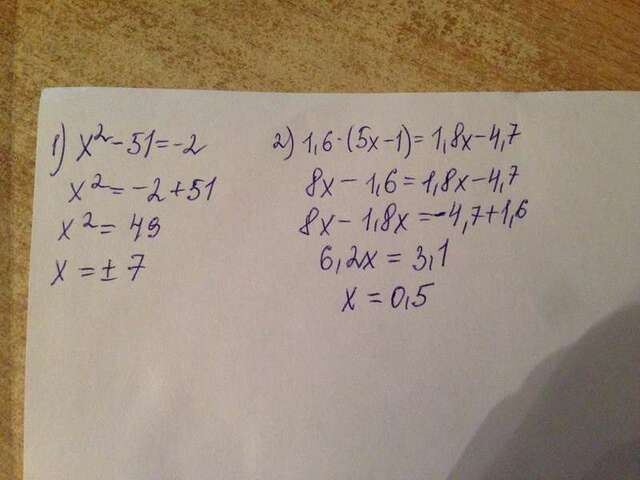 1) x² - 51 = -2
x² = -2 + 51
x² = 49
x = ± 7
2) 1,6 · (5x - 1) = 1,8x - 4,7
8x - 1,6 = 1,8x - 4,7
8x - 1,8x = -4,7 + 1,6
6,2x = 3,1
x = 0,5